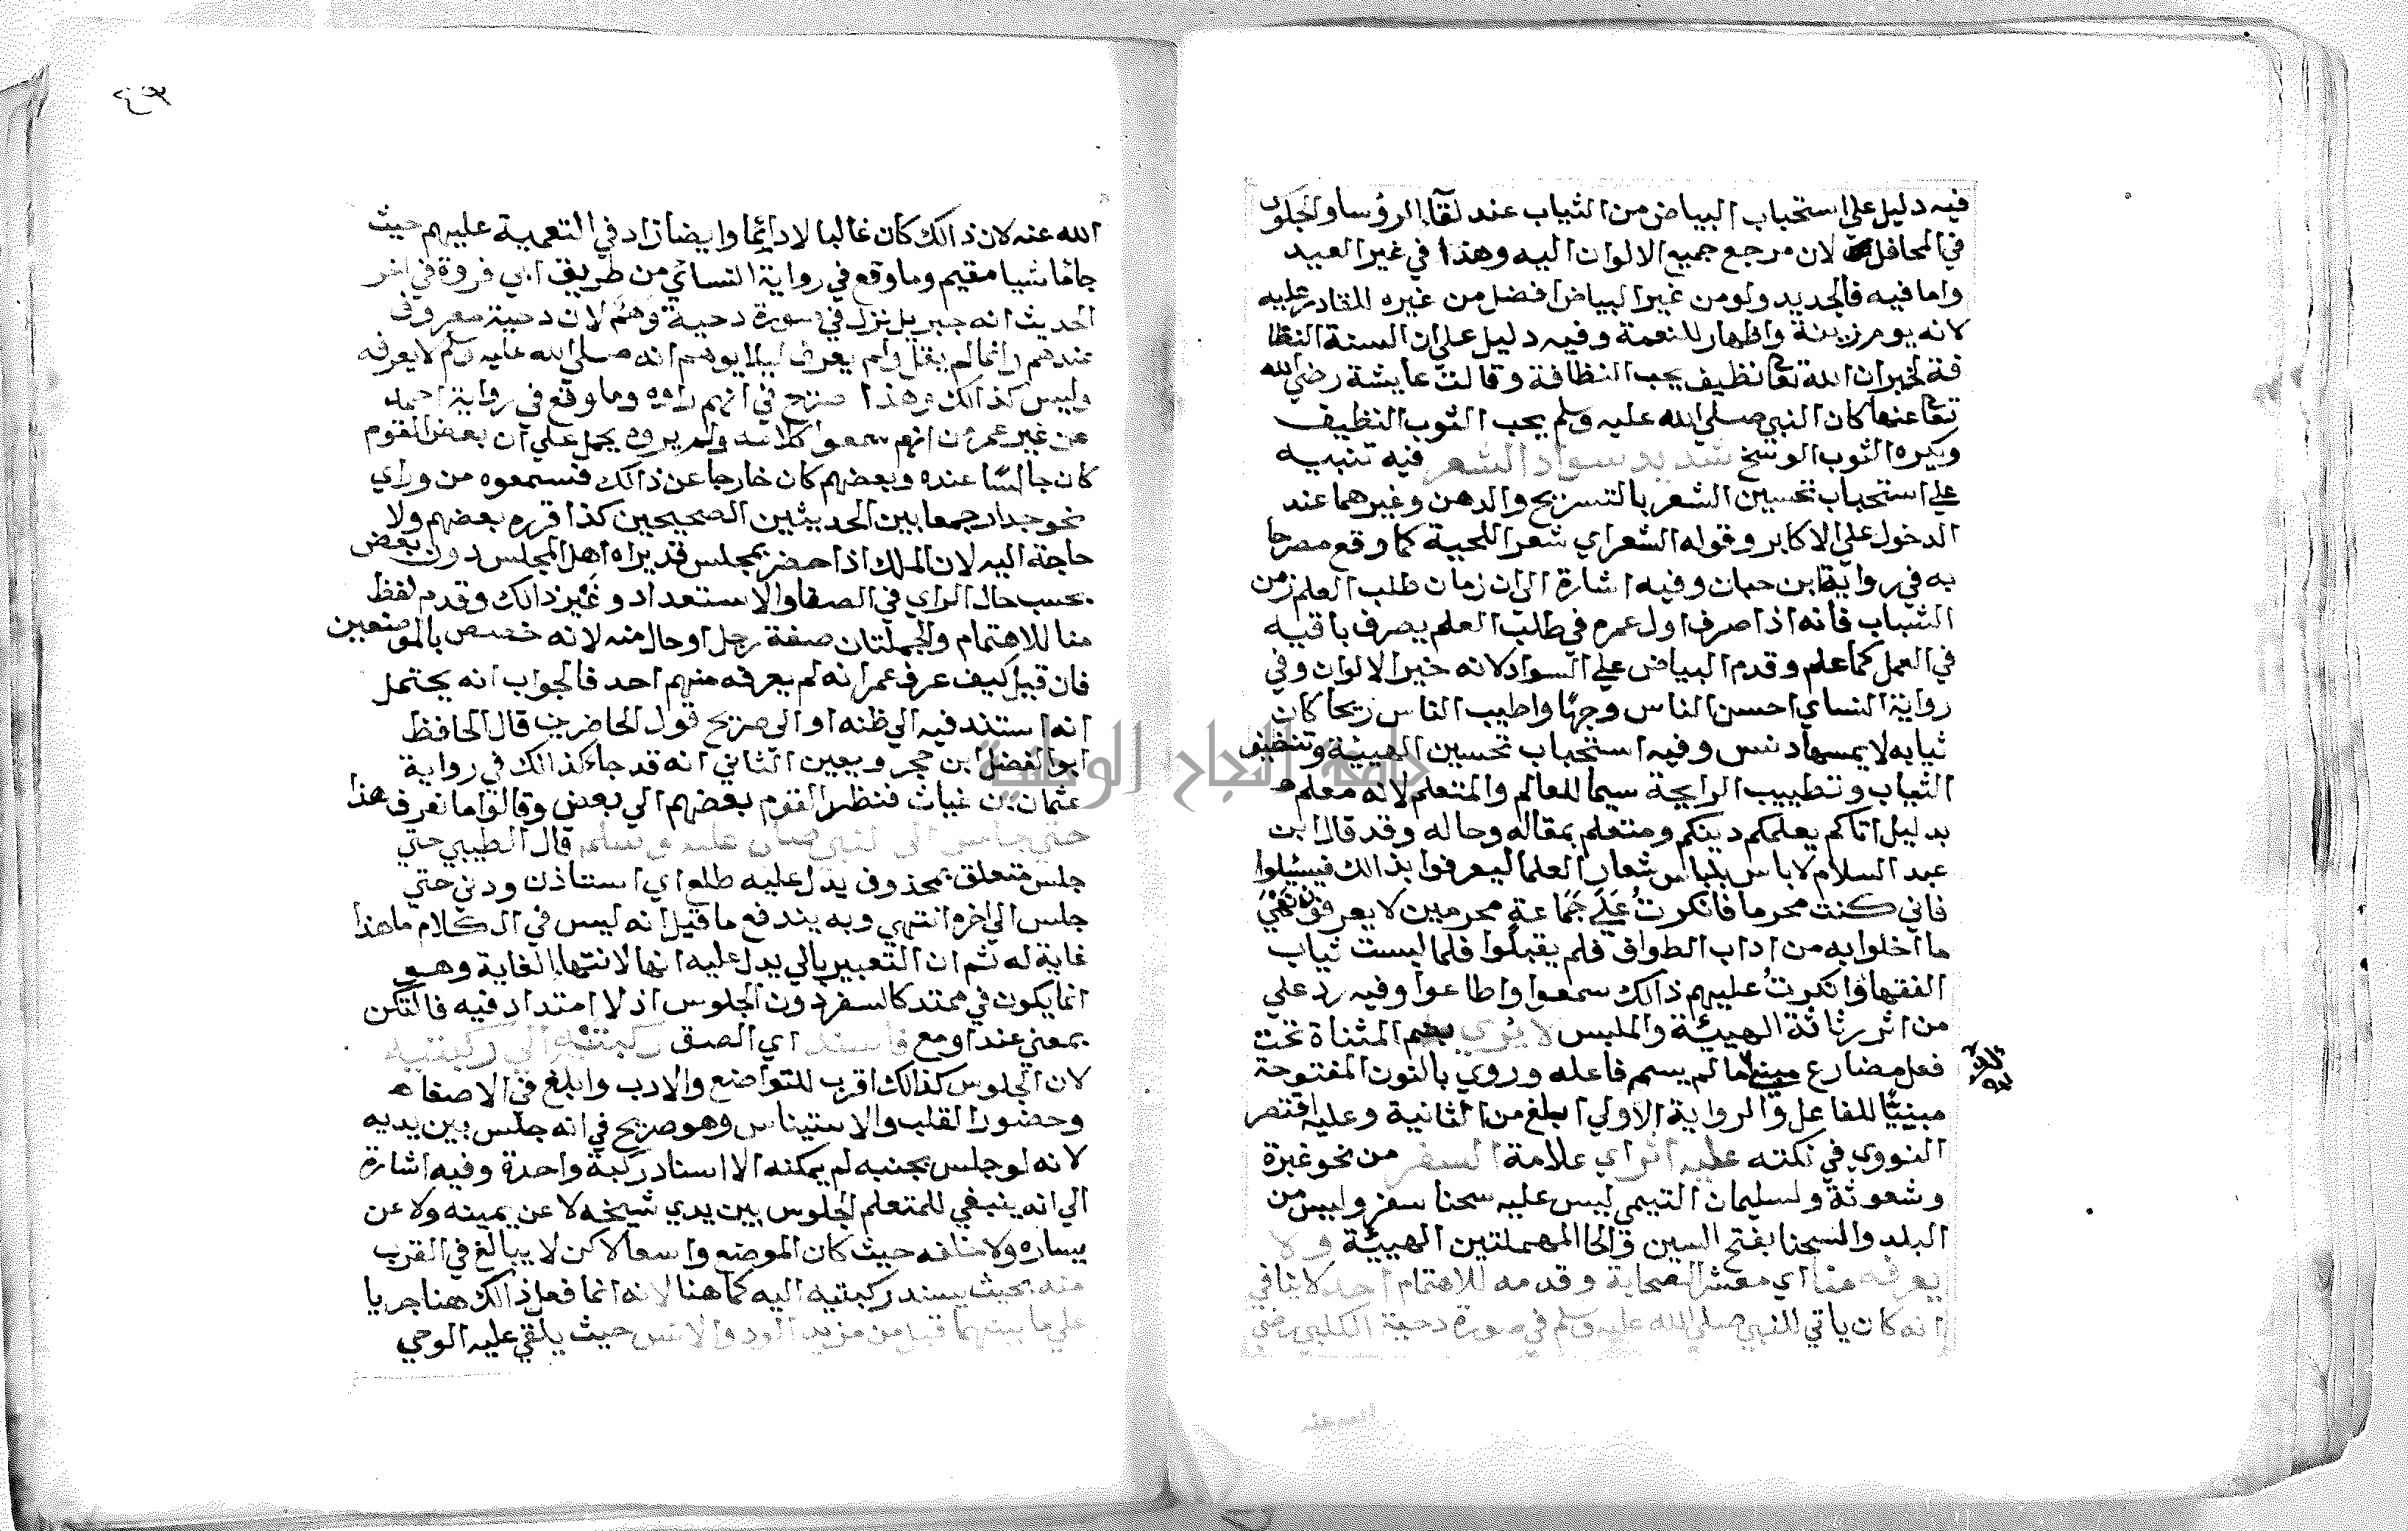 فيه دليل علي استحباب البياض من الثياب عند لقاء الرؤسا والجلوس
في المحافل لان مرجع جميع الالوان اليه وهذا في غير العيد
واما فيه فالجديد ولو من غير البياض افضل من غيره للقادر عليه
لانه يوم زينة واظهار للنعمة وفيه دليل علي ان السنة النظا
فة لخبر ان الله تعا نظيف يحب النظافة وقالت عايشة رضي الله
تعا عنها كان النبي صلي الله عليه وسلم يحب الثوب النظيف
ويكره الثوب الوسخ شديد سواد الشعر فيه تنبيه
علي استحباب تحسين الشعر بالتسريح والدهن وغيرهما عند
الدخول علي الاكابر وقوله الشعر اي شعر اللحية كما وقع مصرحا
به في رواية ابن حبان وفيه اشارة الي ان زمان طلب العلم زمن
الشباب فانه اذا صرف اول عمره في طلب العلم يصرف باقيه
في العمل كما علم وقدم البياض علي السواد لانه خير الالوان وفي
رواية النساي احسن الناس وجها واطيب الناس ريحا كان
ثيابه لا يمسها دنس وفيه استحباب تحسين الهيئة وتنظيف
الثياب وتطييب الرايحة سيما للعالم والمتعلم لانه معلم
بدليل اتاكم يعلمكم دينكم ومتعلم بمقاله وحاله وقد قال ابن
عبد السلام لا باس بلباس شعار العلما ليعرفوا بذالك فيسئلوا
فاني كنت محرما فانكرتُ عَلَي جَمَاعةٍ محرمين لا يعرفونني
ما اخلوا به من اداب الطواف فلم يقبلوا فلما لبست ثياب
الفقها وانكرتُ عليهم ذالك سمعوا واطاعوا وفيه رد علي
من اثر رثاثة الهيئة والملبس لا يُري بضم المثناة تحت
فعل مضارع مبني لما لم يسم فاعله وروي بالنون المفتوحة
مبنيًّا للفاعل والرواية الاولي ابلغ من الثانية وعليها اقتصر
النووي في نكته عليه اثر اي علامة السفر من نحو غبرة
وشعوثة ولسليمان التيمي ليس عليه سحنا سفر وليس من
البلد والسحنا بفتح السين والحا المهملتين الهيئة ولا
يعرفه منا اي معشر الصحابة وقدمه للاهتمام احد لاينافي
انه كان ياتي للنبي صلي الله عليه وسلم في صورة دحية الكلبي رضي
الله عنه لان ذالك كان غالبا لا دائما وايضا زاد في التعمية عليهم حيث
جاء ماشيا مقيم وما وقع في رواية النسائي من طريق ابي فروة في اخر
الحديث انه جبريل نزل في صورة دحية وَهَمٌ لان دحية معروف
عندهم وانما لم يقل ولم يعرف ليلا يوهم انه صلي الله عليه وسلم لا يعرفه
وليس كذالك وهذا صريح في انهم راوه وما وقع في رواية احمد
عن غير عمر من انهم سمعوا كلامه ولم يروه يحمل علي ان بعض القوم
كان جالسًا عنده وبعضهم كان خارجا عن ذالك فسمعوه من وراي
نحو جدار جمعا بين الحديثين الصحيحين كذا قرره بعضهم ولا
حاجة اليه لان الملك اذا حضر بمجلس قد يراه اهل المجلس دون بعض
بحسب حال الراي في الصفا والاستعداد وغير ذالك وقدم لفظ
منا للاهتمام والجملتان صفة رجل او حال منه لانه خصص بالموضعين
فان قيل كيف عرف عمر انه لم يعرفه منهم احد فالجواب انه يحتمل
انه استند فيه الي ظنه او الي صريح قول الحاضرين قال الحافظ
ابو الفضل ابن حجر ويعين الثاني انه قد جاء كذالك في رواية
عثمان بن غياث فنظر القوم بعضهم الي بعض وقالوا ما نعرف هذا
حتي جلس الي النبي صلي الله عليه وسلم قال الطيبي حتي
جلس متعلق بمحذوف يدل عليه طلع اي استاذن ودني حتي
جلس الي اخره انتهي وبه يندفع ما قيل انه ليس في الكلام ما هذا
غاية له ثم ان التعبير بالي يدل عليه انها لانتهاء الغاية وهو
انما يكون في ممتد كالسفر دون الجلوس اذ لا امتداد فيه فالتكن
بمعني عند او مع فاسند اي الصق ركبتيه الي ركبتيه
لان الجلوس كذالك اقرب للتواضع والادب وابلغ في الاصغاء
وحضور القلب والاستيناس وهو صريح في انه جلس بين يديه
لانه لو جلس بجنبه لم يمكنه الا اسناد ركبة واحدة وفيه اشارة
الي انه ينبغي للمتعلم الجلوس بين يدي شيخه لا عن يمينه ولا عن
يساره ولا خلفه حيث كان الموضع واسعا لاكن لا يبالغ في القرب
منه بحيث يسند ركبتيه اليه كما هنا لانه انما فعل ذالك هنا جريا
علي ما بينهما قبل من مزيد الود والانس حيث يلقي عليه الوحي
جامعة النجاح الوطنية